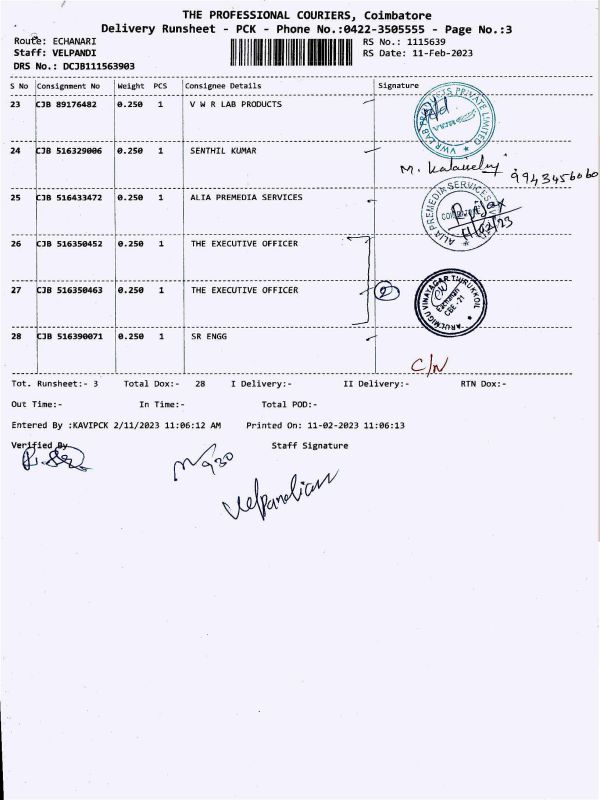 THE PROFESSIONAL COURIERS, Coimbatore
Delivery Runsheet - PCK - Phone No.:0422-3505555 - Page No.:3
Route: ECHANARI RS No.: 1115639
Staff: VELPANDI RS Date: 11-Feb-2023
DRS No.: DCJB111563903
S No Consignment No Weight PCS Consignee Details Signature
23 CJB 89176482 0.250 1 V W R LAB PRODUCTS
VWR LAB PRODUCTS PRIVATE LIMITED
24 CJB 516329006 0.250 1 SENTHIL KUMAR
9943456060
25 CJB 516433472 0.250 1 ALIA PREMEDIA SERVICES
ALIA PREMEDIA SERVICES
11/02/23
26 CJB 516350452 0.250 1 THE EXECUTIVE OFFICER
27 CJB 516350463 0.250 1 THE EXECUTIVE OFFICER
2
ARULMIGU VINAYAGAR THIRUKKOIL
Eachanari
CBE - 21
28 CJB 516390071 0.250 1 SR ENGG
C/N
Tot. Runsheet:- 3 Total Dox:- 28 I Delivery:- II Delivery:- RTN Dox:-
Out Time:- In Time:- Total POD:-
Entered By :KAVIPCK 2/11/2023 11:06:12 AM Printed On: 11-02-2023 11:06:13
Verified By Staff Signature
930
Velpandian